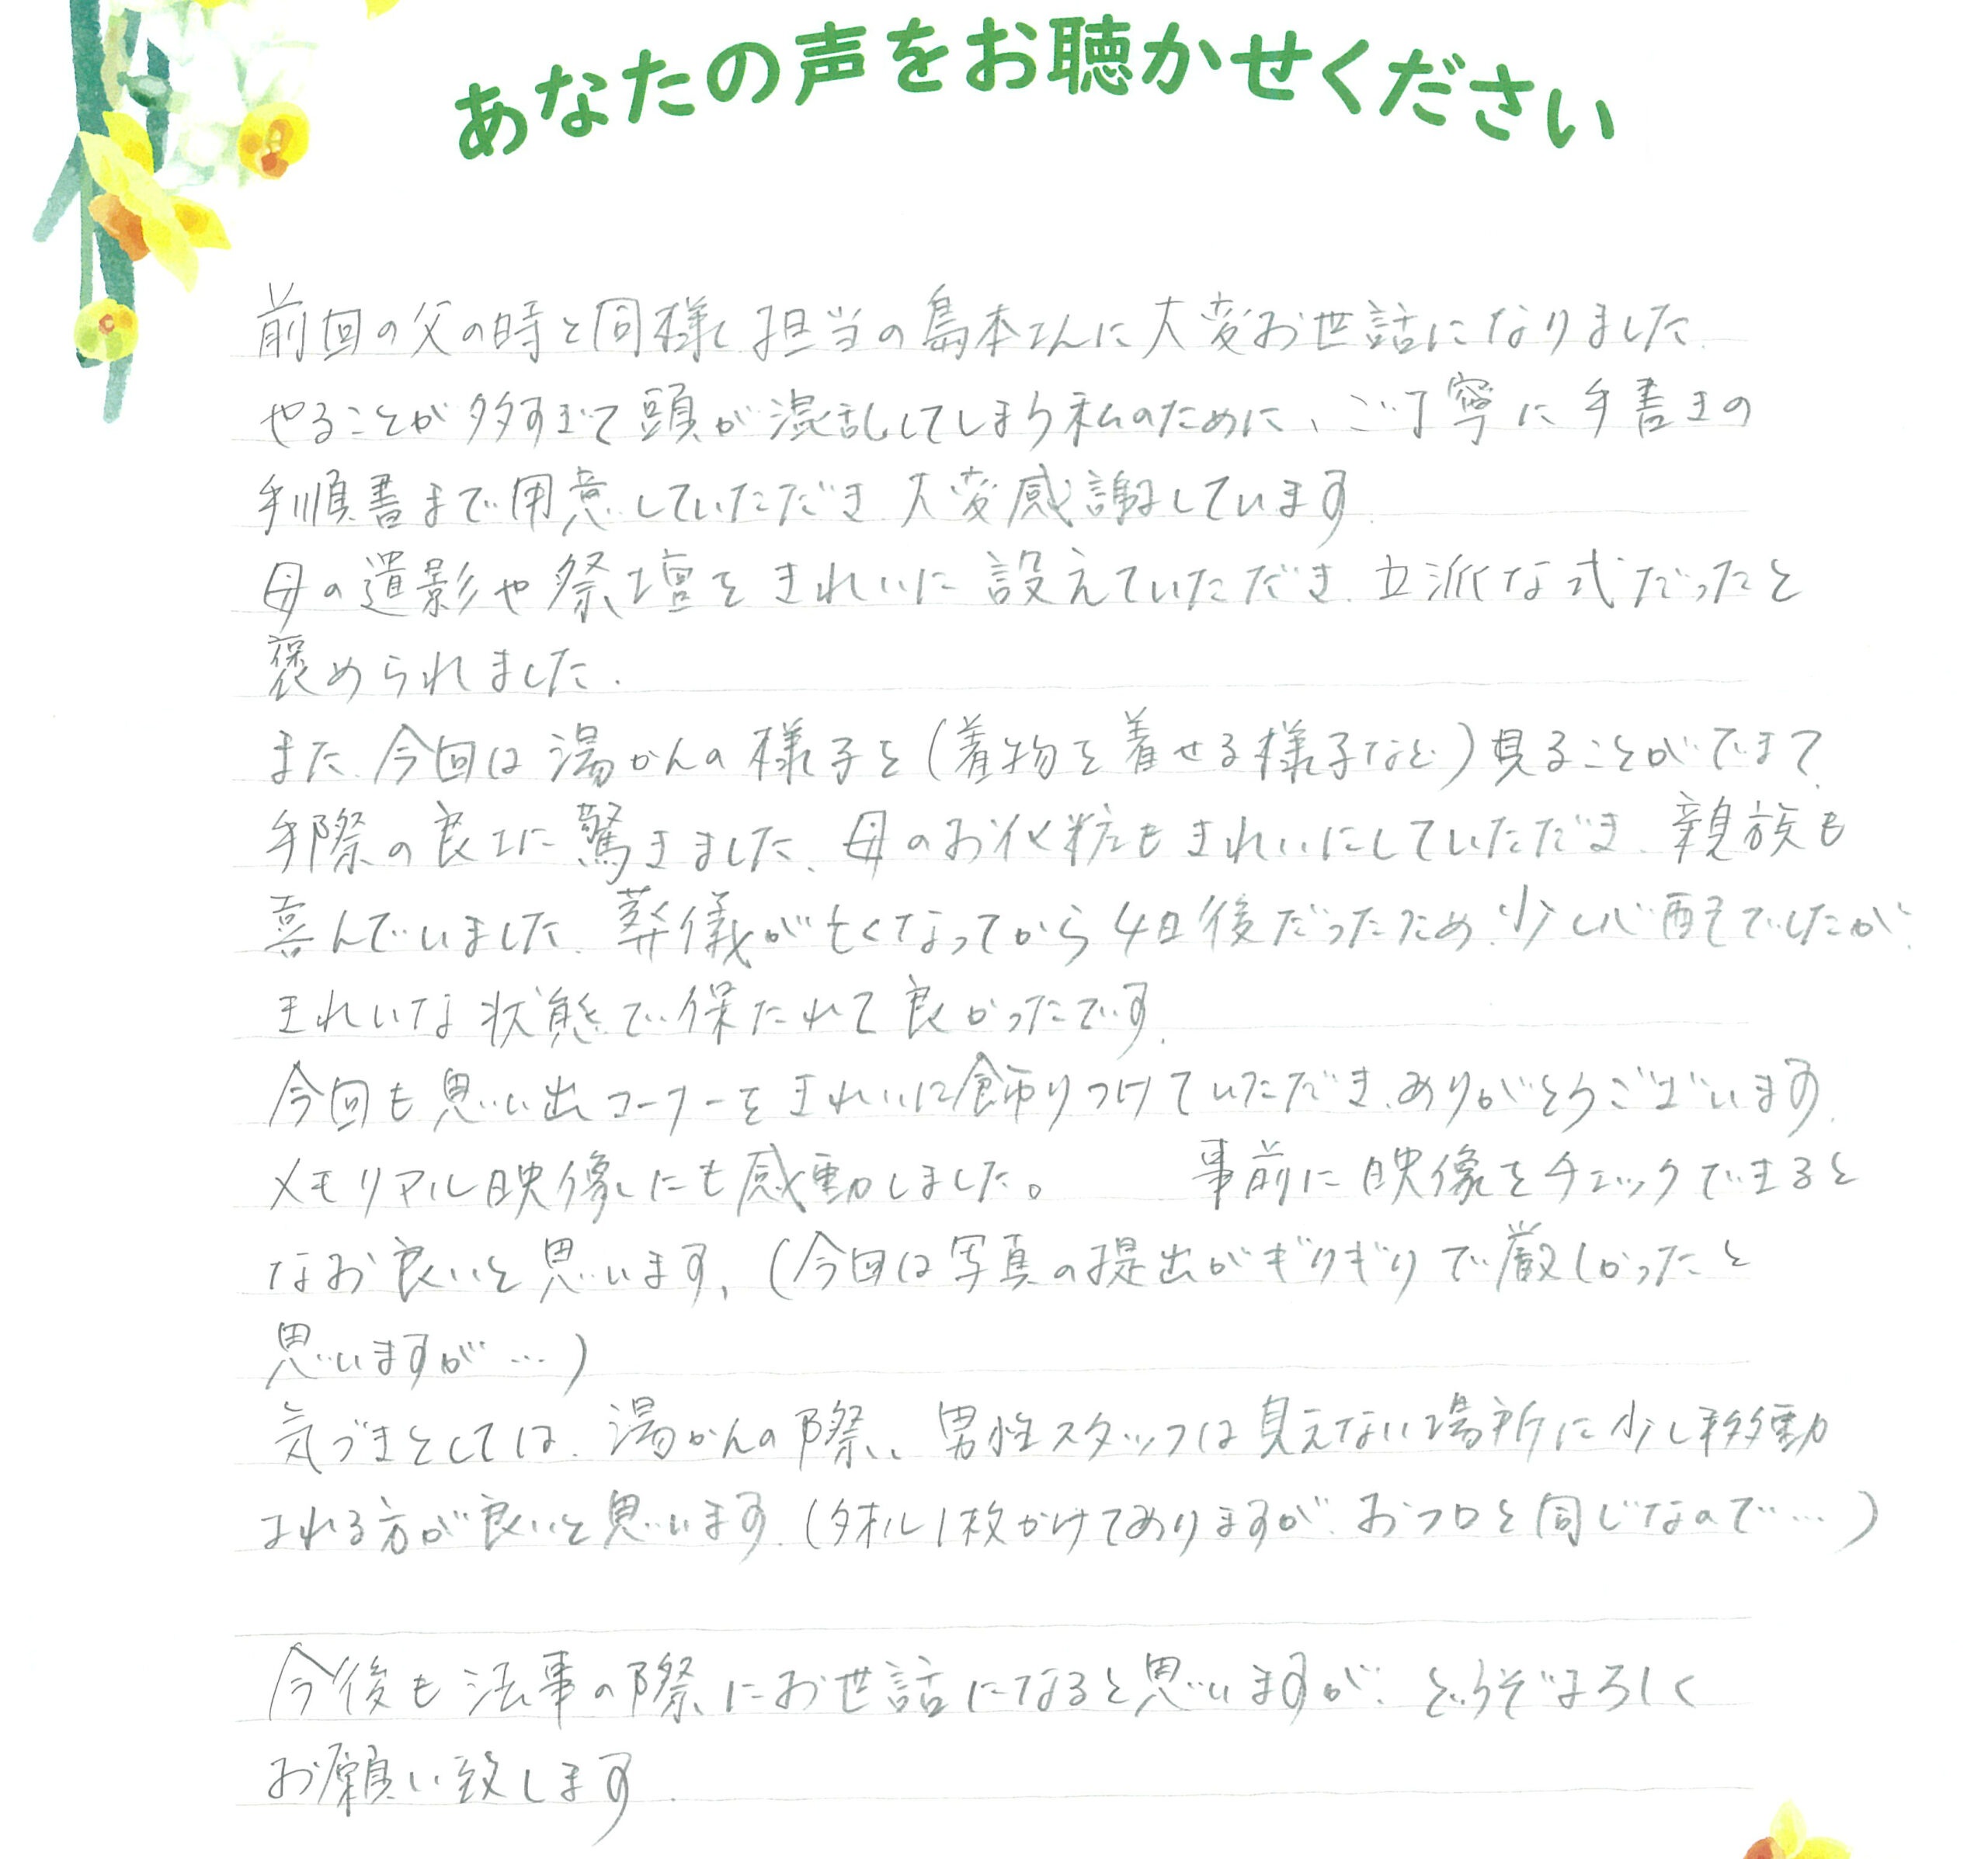 あなたの声をお聴かせください
前回の父の時と同様、担当の島本さんに大変お世話になりました.
やることが多すぎて頭が混乱してしまう私のために、ご丁寧に手書きの
手順書まで用意していただき、大変感謝しています.
母の遺影や祭壇をきれいに設えていただき、立派な式だったと
褒められました.
また、今回は湯かんの様子を(着物を着せる様子など)見ることができて
手際の良さに驚きました、母のお化粧もきれいにしていただき、親族も
喜んでいました、葬儀が亡くなってから4日後だったため、少し心配でしたが、
きれいな状態で保たれて良かったです.
今回も思い出コーナーをきれいに飾りつけていただき、ありがとうございます.
メモリアル映像にも感動しました。 事前に映像をチェックできると
なお良いと思います、(今回は写真の提出がぎりぎりで厳しかったと
思いますが…)
気づきとしては、湯かんの際、男性スタッフは見えない場所に少し移動
される方が良いと思います.(タオル1枚かけてありますが、おフロと同じなので…)
今後も法事の際にお世話になると思いますが、どうぞよろしく
お願い致します.